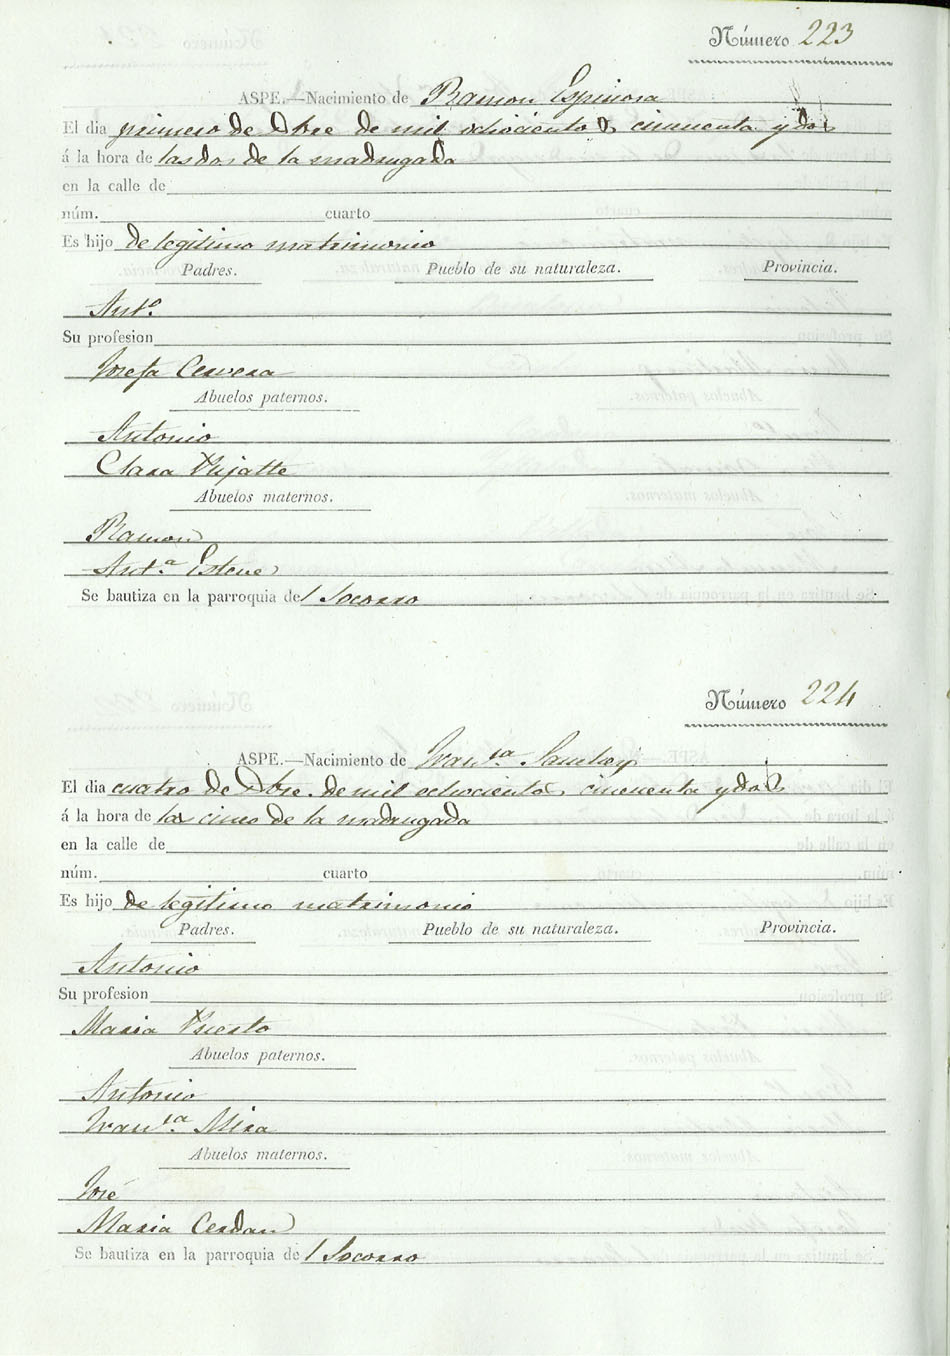 Número 223
ASPE.—Nacimiento de Ramon Espinosa
El dia primero de Dbre de mil ochocientos cincuenta y dos
á la hora de las dos de la madrugada
en la calle de
núm. cuarto
Es hijo de legitimo matrimonio
Padres. Pueblo de su naturaleza. Provincia.
Antº
Su profesion
Josefa Cervera
Abuelos paternos.
Antonio
Clara
Abuelos maternos.
Ramon
Antª Esteve
Se bautiza en la parroquia del Socorro
Número 224
ASPE.—Nacimiento de Franᶜᵃ
El dia cuatro de Dbre. de mil ochocientos cincuenta y dos
á la hora de las cinco de la madrugada
en la calle de
núm. cuarto
Es hijo de legitimo matrimonio
Padres. Pueblo de su naturaleza. Provincia.
Antonio
Su profesion
Maria Puerto
Abuelos paternos.
Antonio
Franᶜᵃ Mira
Abuelos maternos.
José
Maria Cerdan
Se bautiza en la parroquia del Socorro